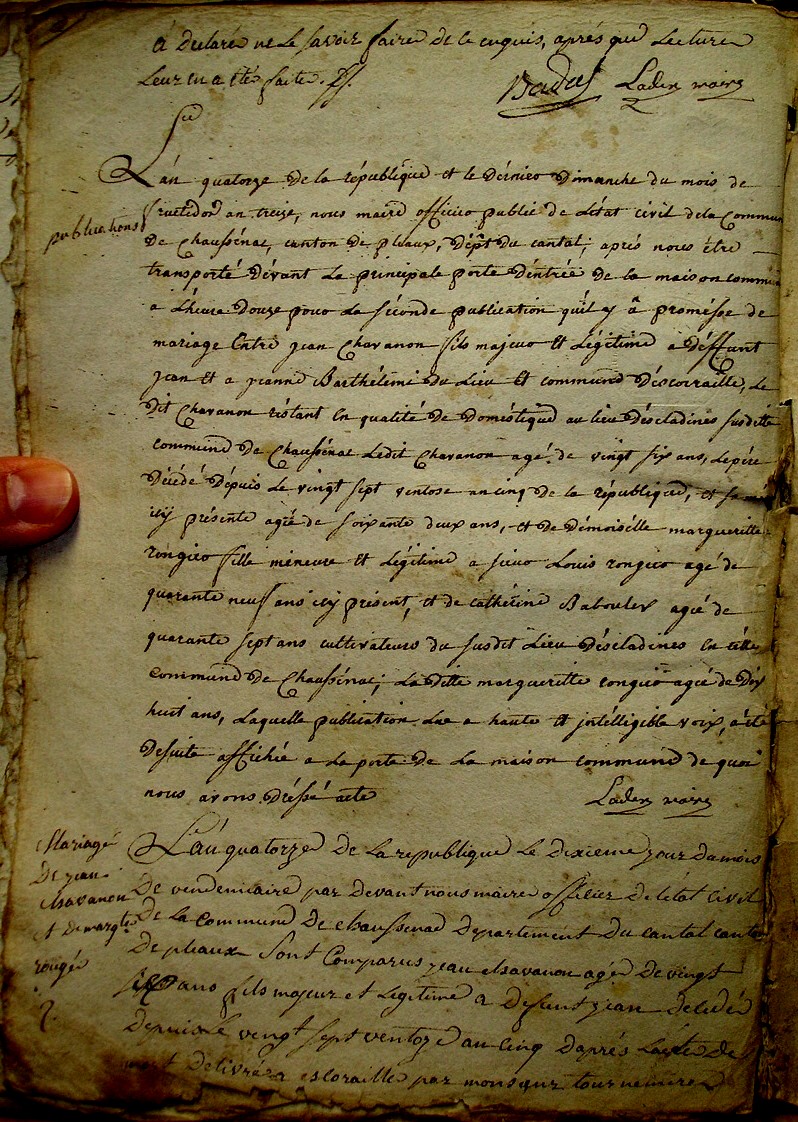 à declaré ne le savoir faire de ce enquis, aprés que Lecture
Leur en a été faite.
Badal Laden maire
L'án quatorze de la république et le dérnier Dimanche du mois de
publications
fructidor an treize, nous maire officier public de L'état civil de la Commune
de Chaussénac, canton de pléaux, dépt du cantal; aprés nous être
transporté dévant La principale porte D'éntrée de la maison commune
a L'heure douze pour La séconde publication qu'il y â promésse de
mariage Entre jean Chavanon fils majeur Et Légitime a Déffunt
jean Et a jeanne Barthélemi du Lieu Et commune D'éscorraille, Le
dit Chavanon réstant En qualité de Doméstique au lieu Déscladines susditte
commune de Chaussénac Ledit Chavanon agé de vingt six ans, Le pére
Décédé dépuis Le vingt sept ventose an cinq de la république, et sa
icy présente agée de soixante deux ans, et de Démoisélle margueritte
rongier fille méneure Et Légitime a sieur Louis rongier agé de
quarante neuf ans icy présent, et de cathérine agée de
quarante sept ans cultivateurs du susdit Lieu Déscladines En cétte
commune de Chaussénac; La ditte margueritte rongier agée de Dix
huit ans, Laquelle publication Lue a haute Et jntélligible voix, a été
De suite affichée a La porte de La maison commune de quoi
nous avons dréssé acte
Laden maire
Mariage
de jean
chavanon
et de margte
rougér
L'an quatorze de La republique Le dixieme jour du mois
de vendemiaire par devant nous maire officier de létat civil
de la commune de chaussenac departement du cantal canton
de pleaux sont comparus jean chavanon agé de vingt
six ans fils majeur et Legitime a defunt jean decedé
depuis le vingt sept ventoze an cinq daprés Lacte de
delivré a escoraille par monsieur tournemire